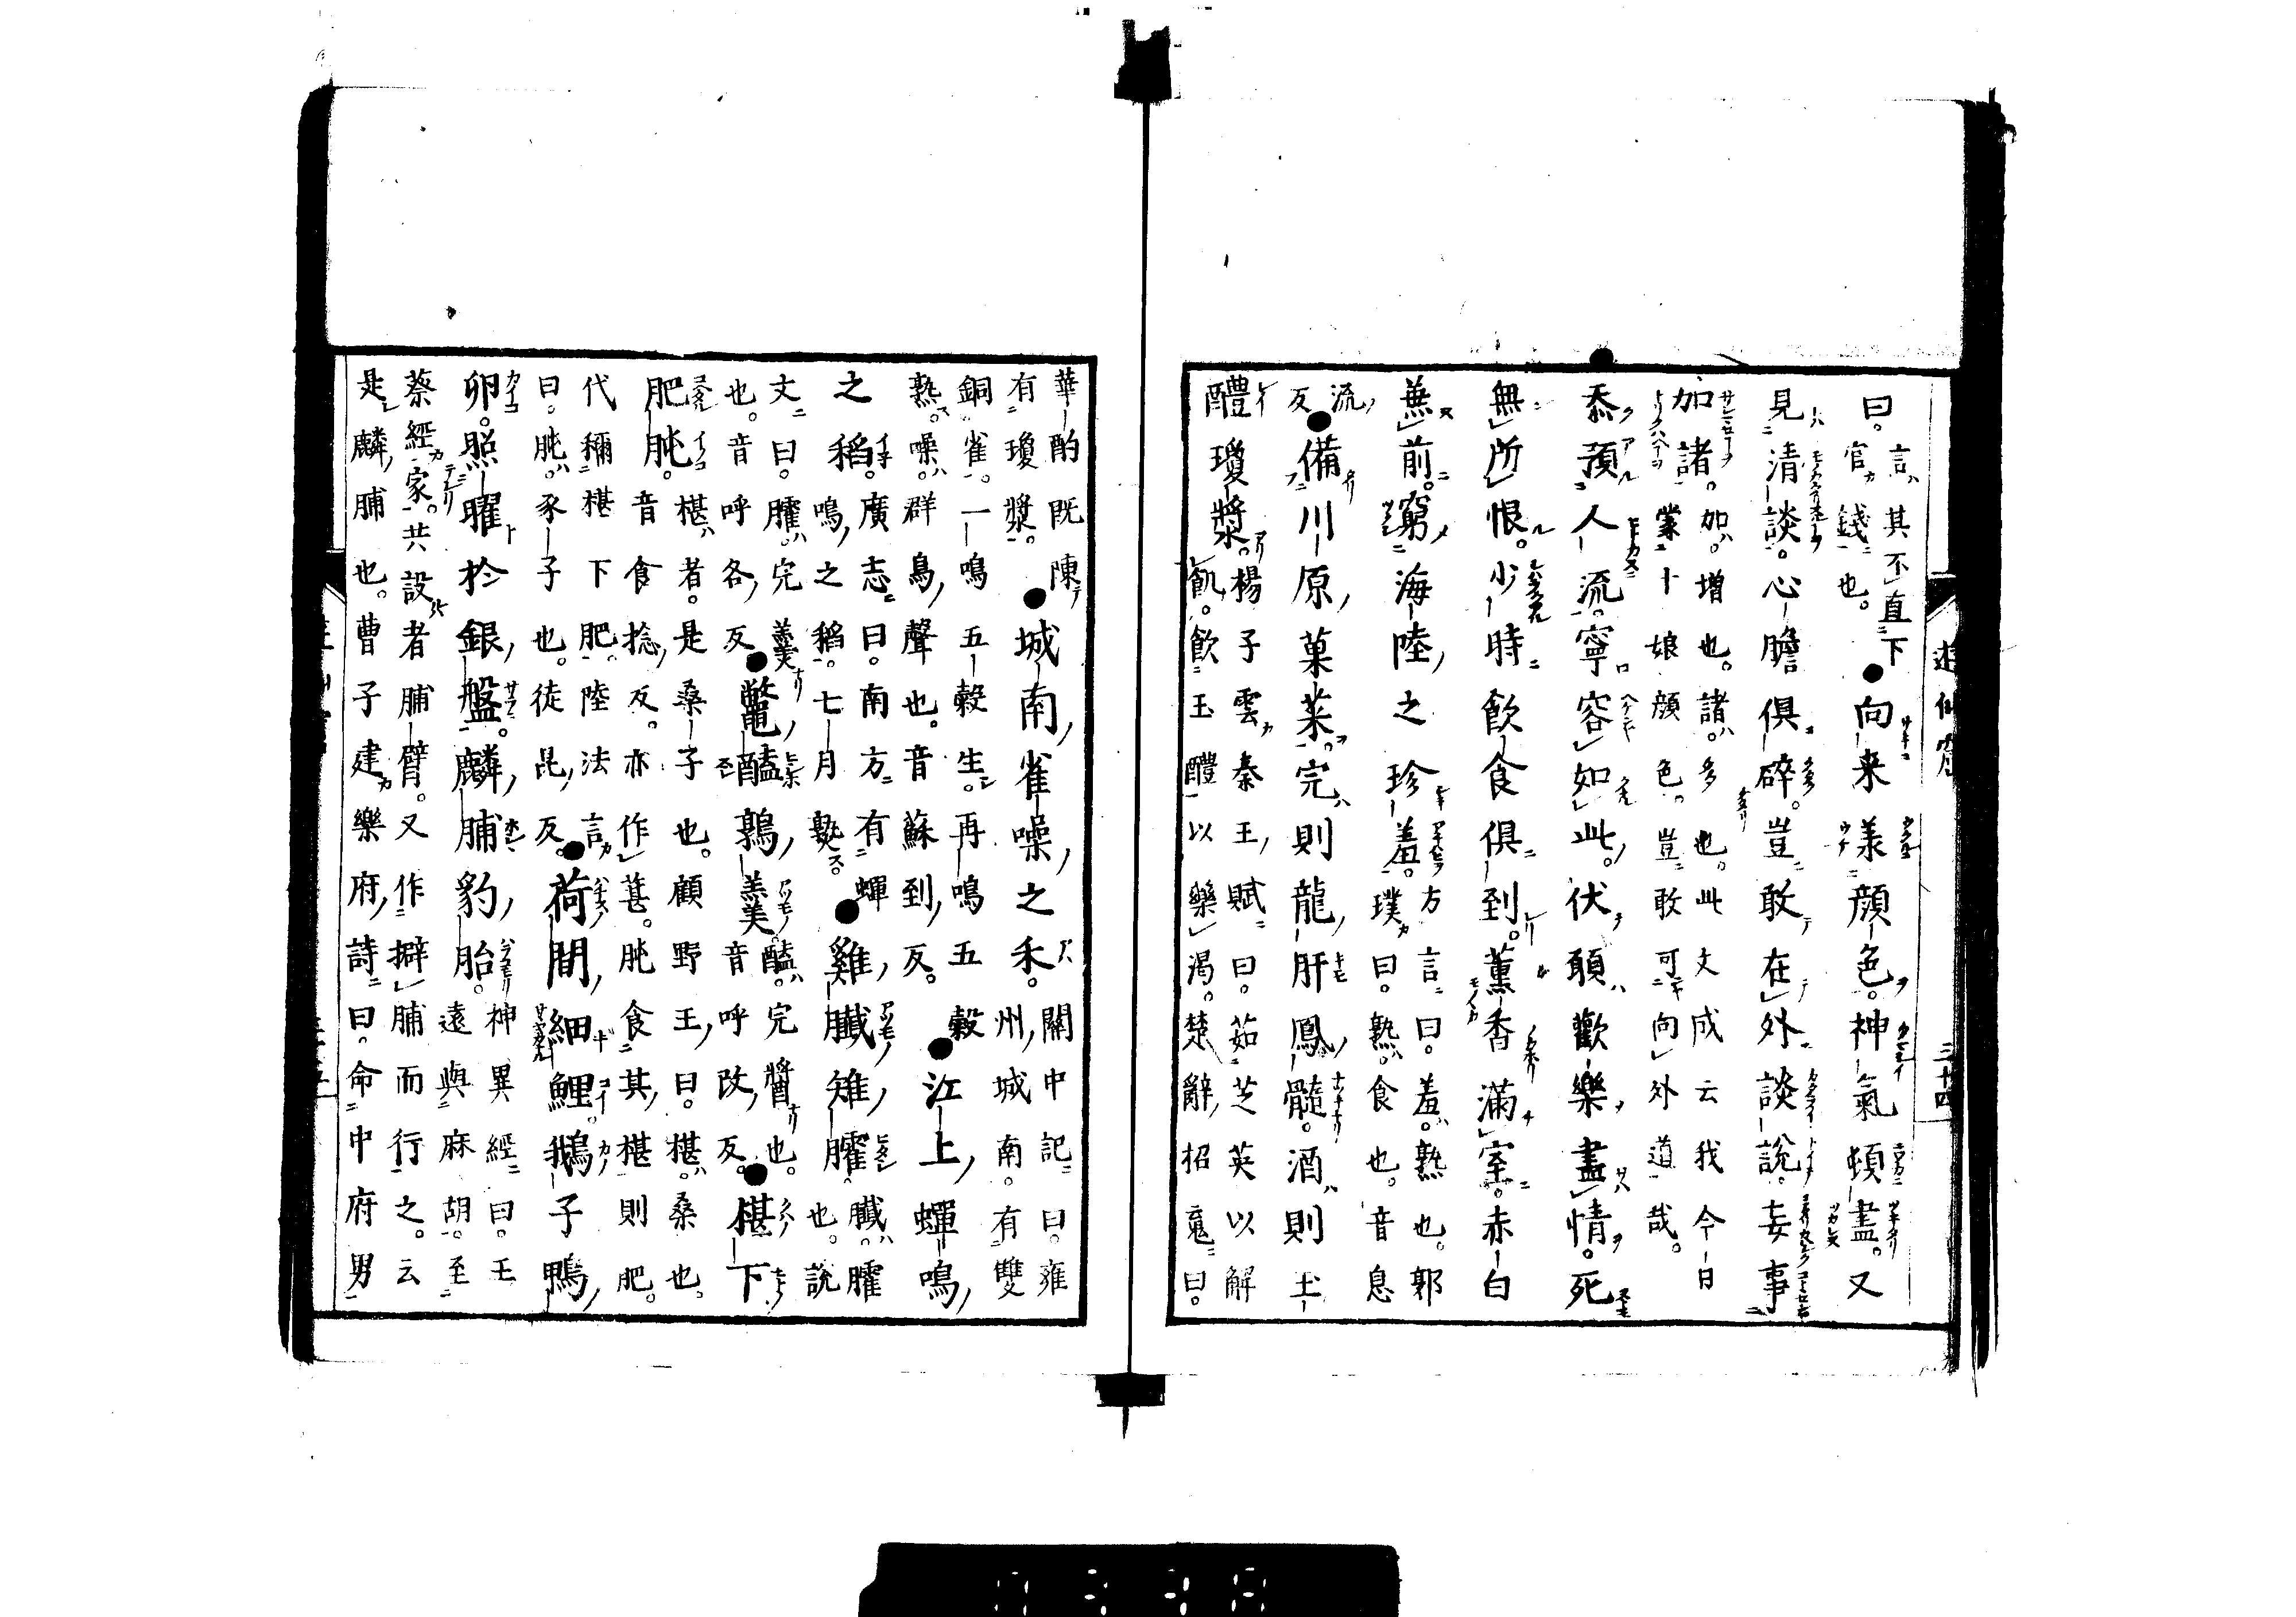 遊仙窟
三十四
曰。言其不直下
官錢也。
向来㨾顔色。神氣頓盡。又
見清談。心膽俱碎。豈敢在外談說。妄事
加諸。加。增也。諸。多也。此文成云我今日
蒙十娘顔色。豈敢可向外道哉。
忝預人流。寧容如此。伏願歡樂盡情。死
無所恨。少時飮食俱到。薰香滿室。赤白
兼前。窮海陸之珍羞。方言曰。羞。熟也。郭
璞曰。熟。食也。音息
流反
備川原菓菜。完則龍肝鳳髓。酒則玉
醴瓊漿。楊子雲秦王賦曰。茹芝英以解
飢。飮玉醴以樂渴。楚辭招䰟曰。
華酌既陳
有瓊漿。
城南雀噪之禾。關中記曰。雍
州城南。有雙
銅雀。一鳴五穀生。再鳴五穀
熟。噪。群鳥聲也。音蘇到反。
江上蟬鳴
之稻。廣志曰。南方有蟬
鳴之稻。七月熟。
雞臛雉臛。臛也。說
文曰。臛。完羹
也。音呼各反
鼈醢鶉羹。醢。完醬也。
音呼改反。
椹下
肥肫。椹者。是桑子也。顧野王曰。椹。桑也。
音食捻反。亦作葚。肫食其椹則肥。
代稱椹下肥。陸法言
曰。肫。豕子也。徒昆反。
荷間細鯉。鵝子鴨
卵。照曜於銀盤。麟脯豹胎。神異經曰。王
遠與麻胡。至
蔡經家。共設者脯臂。又作擗脯而行之。云
是麟脯也。曹子建樂府詩曰。命中府男